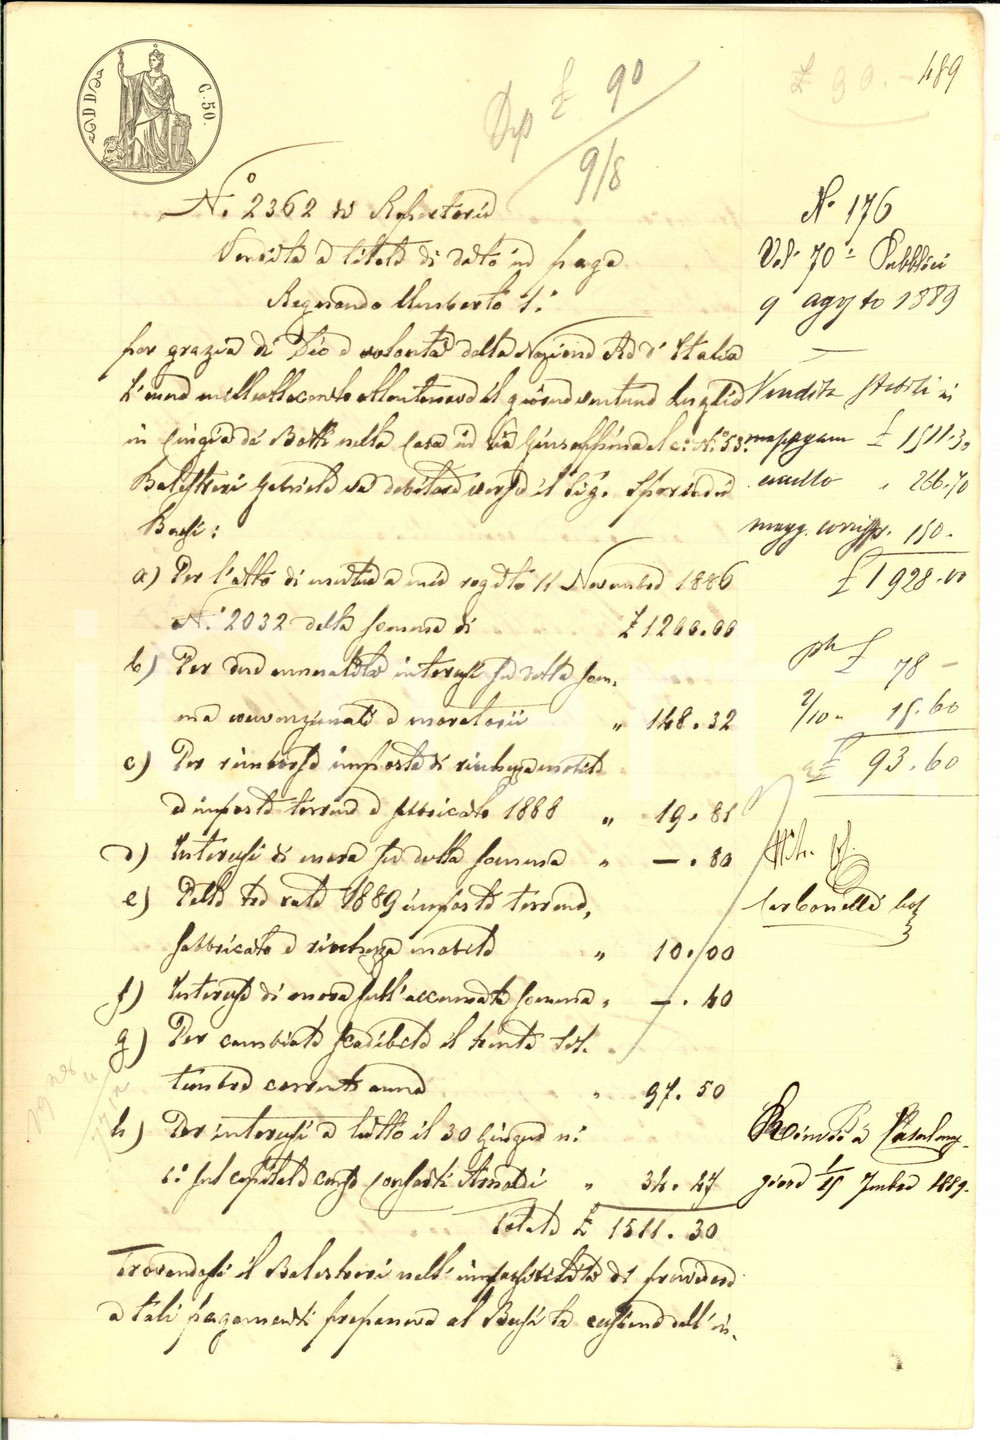 C. 50.
£ 90
9/8
£ 90. -
489
N.º 2362 di Repertorio
Vendita a titolo di dato in paga
Regnando Umberto 1.º
per grazia di Dio e volontà della Nazione Re d'Italia
L'anno milleottocentottantanove il giorno ventuno Luglio
in Cingia de' Botti nella Casa in via Giuseppina al c: N.º 53.
Balestreri Gabriele va debitore verso il Sig.
Busi:
a) Per l'atto di mutuo a mio rogito 11 Novembre 1886
N.º 2032 della somma di £ 1200.00
b) Per due annualità interessi su detta som-
ma convenzionati e moratorii " 148.32
c) Per rimborso imposta di ricchezza mobile
e imposta terreni e fabbricato 1888 " 19.81
d) Interessi di mora su detta somma " —.80
e) rate 1889 imposta terreno,
fabbricato e ricchezza mobile " 10.00
f) Interessi di mora sull'accennata somma " —.40
g) Per cambiale scadibile il trenta Set-
tembre corrente anno " 97.50
h) Per interessi a tutto il 30 Giugno
sul capitale " 34.47
Totale £ 1511.30
Trovandosi il Balestreri nell'impossibilità di provvedere
a tali pagamenti proponeva al Busi la cessione dell'in-
N.º 176
Vol. 70º Pubblici
9 agosto 1889
Vendita
£ 1511.30
" 266.70
magg. 150.
£ 1928.00
£ 78 —
2/10 " 15.60
£ 93.60
1889.